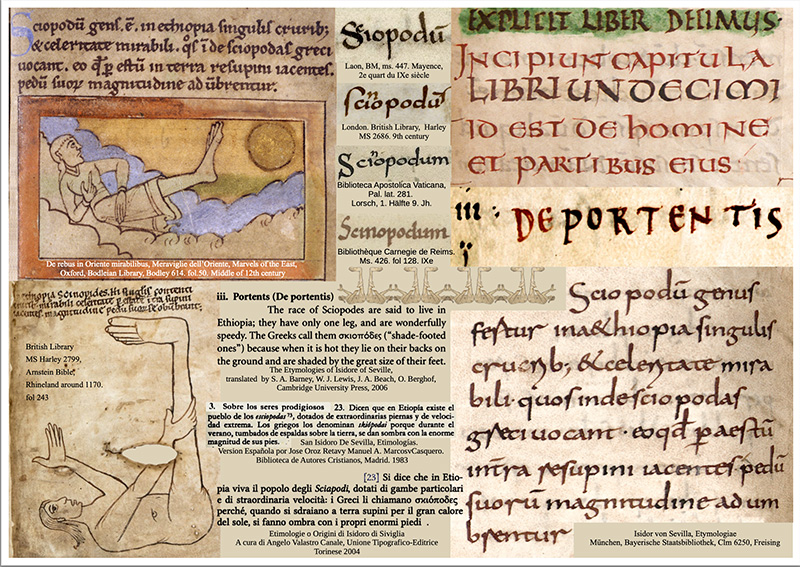 Sciopodũ gens. ẽ. in ethiopia singulis cruribꝫ
& celeritate mirabili. qs̃ ĩde sciopodas greci
uocant. eo qď p estũ in terra resupini iacentes.
pedũ suoꝝ magnitudine adũbrentur.
De rebus in Oriente mirabilibus, Meraviglie dell'Oriente, Marvels of the East,
Oxford, Bodleian Library, Bodley 614. fol.50. Middle of 12th century
Sciopodũ
Laon, BM, ms. 447. Mayence,
2e quart du IXe siècle
scinopodũ
London. British Library, Harley
MS 2686. 9th century
Scinopodum
Biblioteca Apostolica Vaticana,
Pal. lat. 281.
Lorsch, 1. Hälfte 9. Jh.
Scinopodum
Bibliothèque Carnegie de Reims.
Ms. 426. fol 128. IXe
EXPLICIT LIBER DECIMUS·
INCIPIUNT CAPITULA
LIBRI UNDECIMI
ID EST DE hOMINE
ET PARTIBUS EIUS·
iii· DE PORTENTIS
British Library
MS Harley 2799,
Arnstein Bible,
Rhineland around 1170.
fol 243
iii. Portents (De portentis)
The race of Sciopodes are said to live in
Ethiopia; they have only one leg, and are wonderfully
speedy. The Greeks call them σκιοπόδες ("shade-footed
ones") because when it is hot they lie on their backs on
the ground and are shaded by the great size of their feet.
The Etymologies of Isidore of Seville,
translated by S. A. Barney, W. J. Lewis, J. A. Beach, O. Berghof,
Cambridge University Press, 2006
3. Sobre los seres prodigiosos 23. Dicen que en Etiopía existe el
pueblo de los esciopodas⁷⁵, dotados de extraordinarias piernas y de veloci-
dad extrema. Los griegos los denominan skiópodai porque durante el
verano, tumbados de espaldas sobre la tierra, se dan sombra con la enorme
magnitud de sus pies.
San Isidoro De Sevilla, Etimologías.
Version Española por Jose Oroz Retavy Manuel A. MarcosvCasquero.
Biblioteca de Autores Cristianos, Madrid. 1983
[23] Si dice che in Etio-
pia viva il popolo degli Sciapodi, dotati di gambe particolari
e di straordinaria velocità: i Greci li chiamano σκιόποδες
perché, quando si sdraiano a terra supini per il gran calore
del sole, si fanno ombra con i propri enormi piedi .
Etimologie o Origini di Isidoro di Siviglia
A cura di Angelo Valastro Canale, Unione Tipografico-Editrice
Torinese 2004
Sciopodũ genus
fertur in a&hiopia singulis
cruribꝫ; & celeritate mira
bili· quos inde sciopodas
greci uocant· eo qđ p aestũ
in terra resupini iacentes pedũ
suorũ magnitudine adum
brentur
Isidor von Sevilla, Etymologiae
München, Bayerische Staatsbibliothek, Clm 6250, Freising